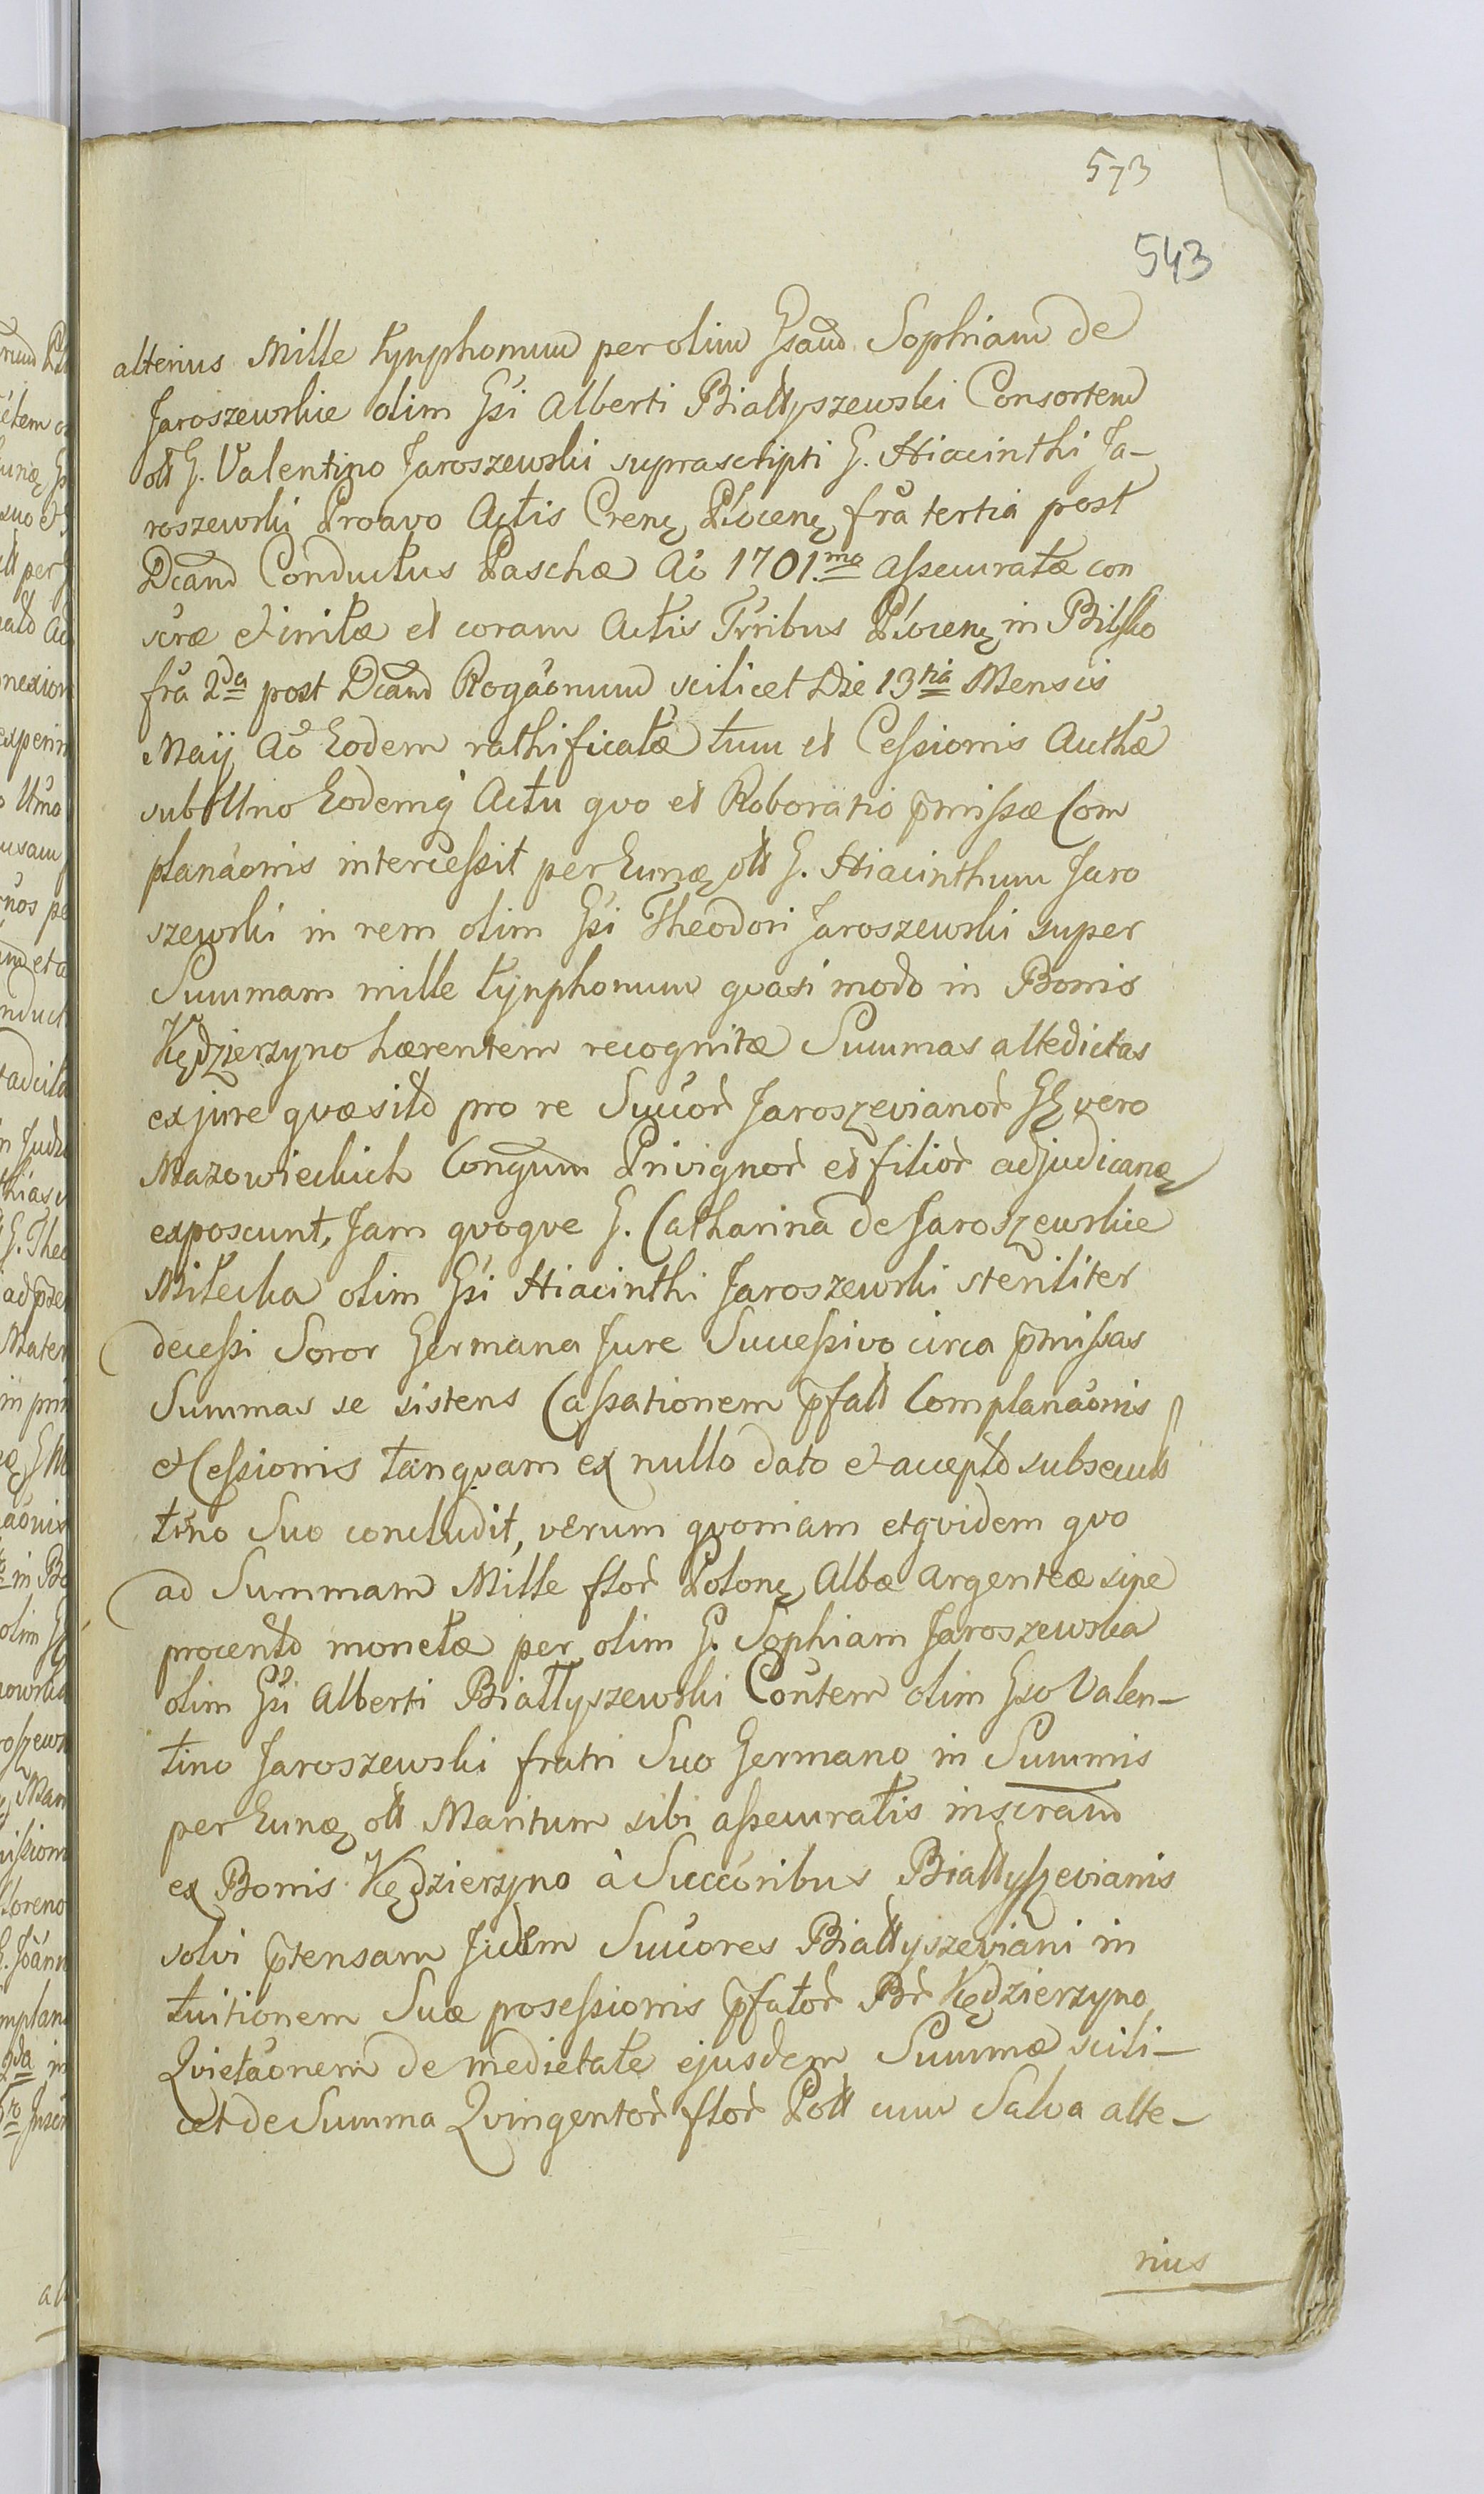 573
543
alterius Mille tynphonum per olim Gsam Sophiam de
Jaroszewskie olim Gsi Alberti Białłyszewski Consortem
olt G. Valentino Jaroszewski suprascripti G. Hiacinthi Ja-
roszewski Proavo Actis Crens Plocens fra tertia post
Dcam Conductus Paschæ Ao 1701.mo assecuratæ con
scræ et initæ et coram Actis Trribus Plocens in Bilsko
fra 2da post Dcam Rogaonum scilicet Die 13tia Mensis
Maij Ao Eodem rathificatæ tum et Cessionis Authæ
sub Uno Eodemq Actu quo et Roboratio pmissæ Com
planaonis intercessit per Eunds olt G. Hiacinthum Jaro
szewski in rem olim Gsi Theodori Jaroszewski super
Summam mille tynphonum quasi modo in Bonis
Kędzierzyno hærentem recognitæ Summas altedictas
ex jure quæsito pro re Succor Jaroszevianor Gs vero
Mazowieckich Congum Privignor et filior adjudicans
exposcunt, Jam quoque G. Catharina de Jaroszewskie
Milecka olim Gsi Hiacinthi Jaroszewski steriliter
decessi Soror Germana Jure Successivo circa pmissas
Summas se sistens Cassationem pfatt Complanaonis
et Cessionis tanquam ex nullo dato et accepto subsecuts
tino Suo concludit, verum quoniam etquidem quo
ad Summam Mille flor Polons Albæ Argenteæ sine
procento monetæ per olim G. Sophiam Jaroszewska
olim Gsi Alberti Białłyszewski Coutem olim Gso Valen-
tino Jaroszewski fratri Suo Germano in Summis
per Eunds olt Maritum sibi assecuratis inscram
ex Bonis Kędzierzyno à Succoribus Białłyszevianis
solvi ptensam Jidem Succores Białłyszeviani in
tuitionem Suæ posessionis pfator Br Kędzierzyno
Qvietaonem de medietate ejusdem Summæ scili-
cet de Summa Qvingentor flor Poll cum Salva alte-
rius